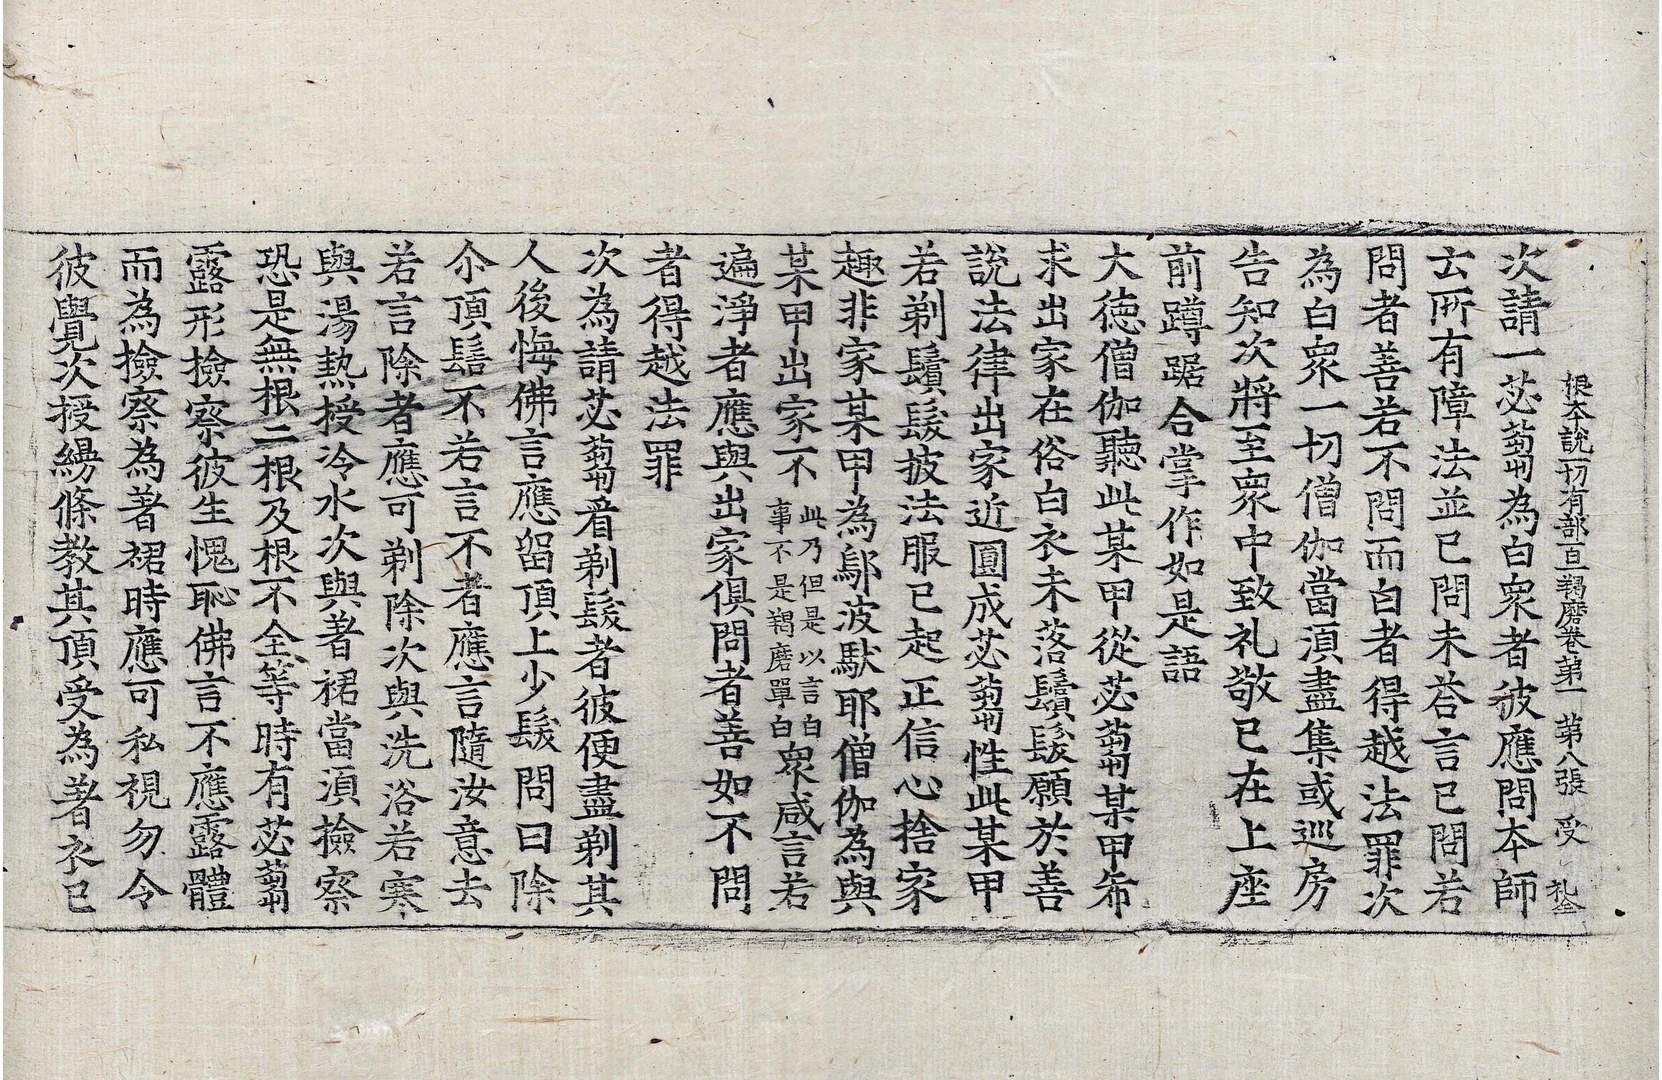 根本說一切有部百一羯磨卷第一 第八張 受 礼全
次請一苾蒭為白衆者彼應問本師
云所有障法並已問未荅言已問若
問者善若不問而白者得越法罪次
為白衆一切僧伽當湏盡集或巡房
告知次將至衆中致礼敬已在上座
前蹲踞合掌作如是語
大德僧伽聽此某甲從苾蒭某甲希
求出家在俗白衣未落鬚髮願於善
說法律出家近圓成苾蒭性此某甲
若剃鬚髮披法服已起正信心捨家
趣非家某甲為鄔波馱耶僧伽為與
某甲出家不此乃但是以言白事不是羯磨單白衆咸言若
遍淨者應與出家俱問者善如不問
者得越法罪
次為請苾蒭看剃髮者彼便盡剃其
人後悔佛言應留頂上少髮問曰除
尒頂髻不若言不者應言隨汝意去
若言除者應可剃除次與洗浴若寒
與湯熱授冷水次與著裙當湏撿察
恐是無根二根及根不全等時有苾蒭
露形撿察彼生愧恥佛言不應露體
而為撿察為著裙時應可私視勿令
彼覺次授縵條教其頂受為著衣已